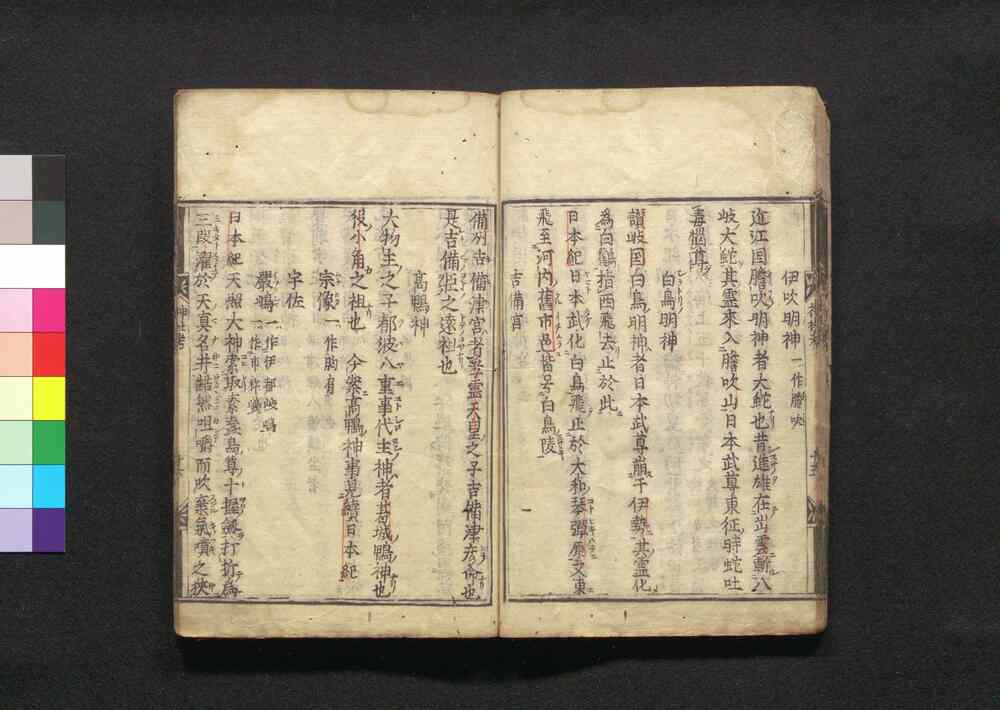 伊吹明神 一作膽吹
近江国膽吹明神者大蛇也昔進雄在出雲斬八
岐大蛇其霊來入膽吹山日本武尊東征時蛇吐
毒惱尊
白鳥明神
讃岐国白鳥明神者日本武尊崩于伊勢其霊化
為白鶴指西飛去止於此
日本紀日本武化白鳥飛止於大和琴彈原又東
飛至河内舊市邑皆号白鳥陵
吉備宮
備州吉備津宮者孝霊天皇之子吉備津彦命也
是吉備姫之遠祖也
高鴨神
大物主之子都波八重事代主神者葛城鴨神也
役小角之祖也 今案高鴨神事見續日本紀
宗像 一作胸肩
宇佐
嚴嶋 一作伊都岐嶋 一作市杵嶋
日本紀天照大神索取素盞烏尊十握劔打折為
三段濯於天真名井齧然咀嚼而吹棄氣噴之狹
神社考